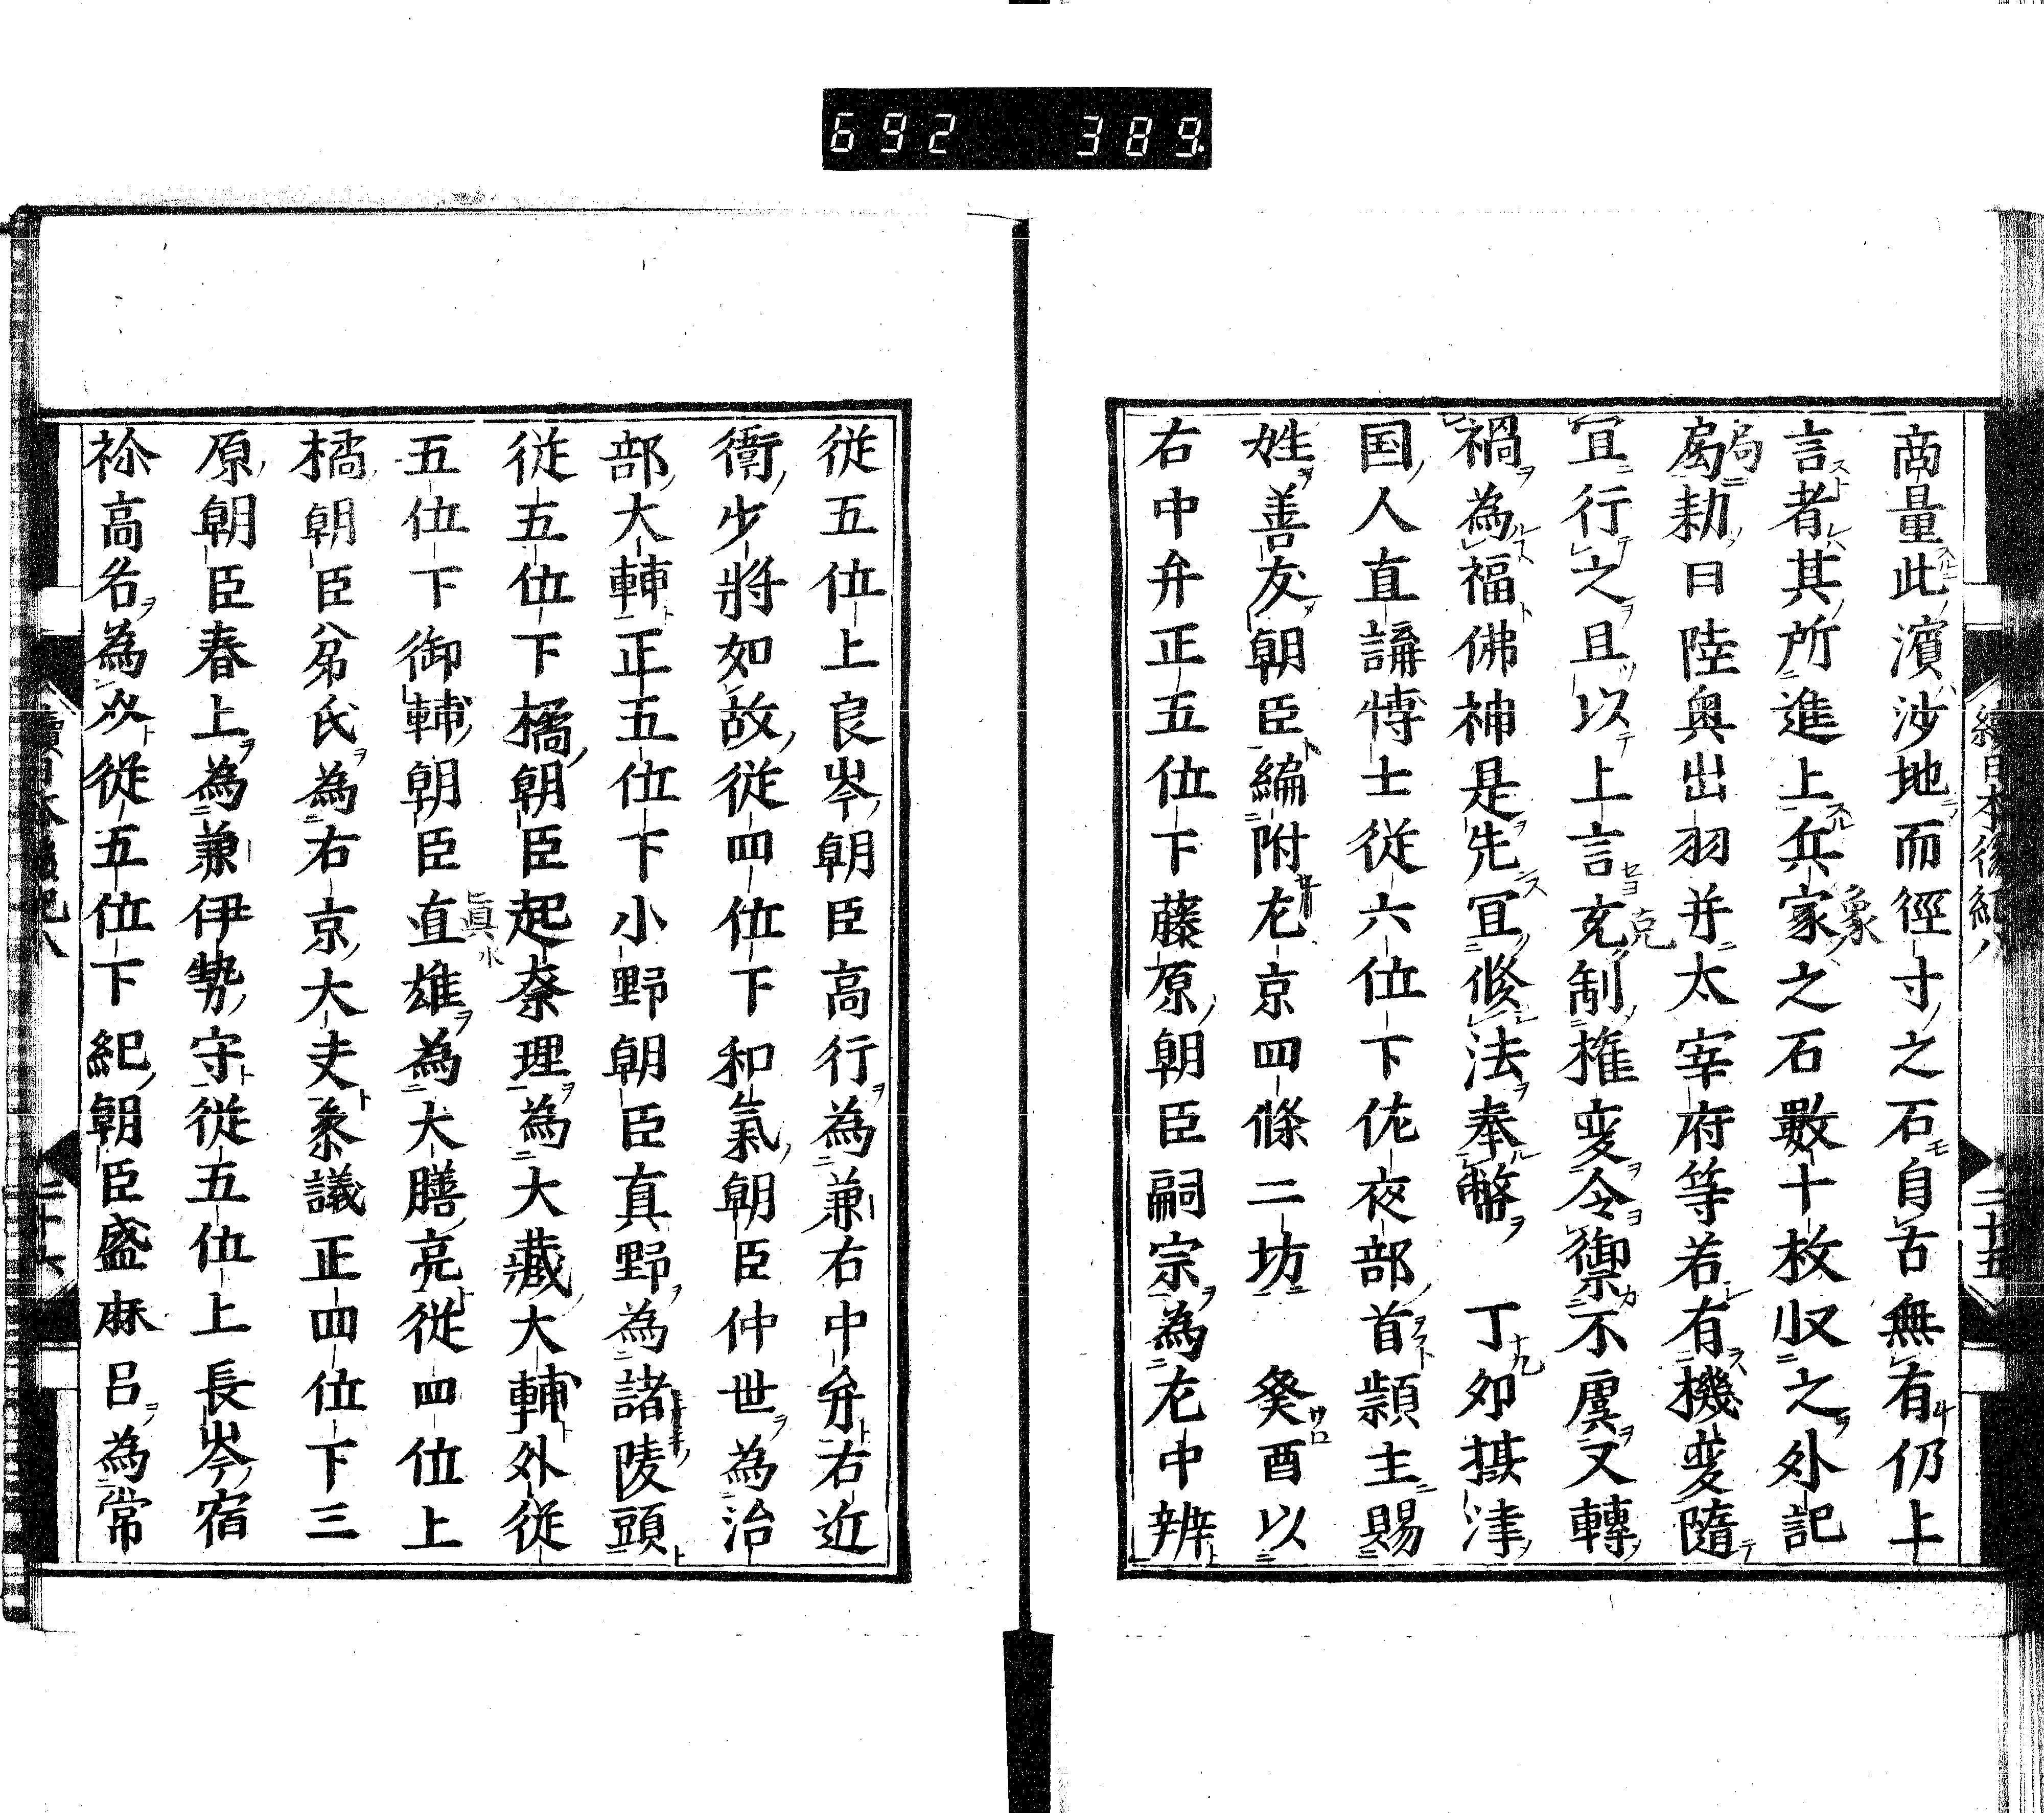 692 389.
續日本後紀八
二十五
商量此濱沙地而徑寸之石自古無有仍上
言者其所進上兵家之石數十枚収之外記
局勅曰陸奥出羽并太宰府等若有機変隨
冝行之且以上言克制権変令禦不虞又轉
禍為福佛神是先冝修法奉幣 丁夘摂津
国人直講博士従六位下佐夜部首頴主賜
姓善友朝臣編附左京四條二坊 癸酉以
右中弁正五位下藤原朝臣嗣宗為左中辨
従五位上良岑朝臣高行為兼右中弁右近
衛少將如故従四位下和氣朝臣仲世為治
部大輔正五位下小野朝臣真野為諸陵頭
従五位下橘朝臣起奈理為大藏大輔外従
五位下御輔朝臣直雄為大膳亮従四位上
橘朝臣氏為右京大夫参議正四位下三
原朝臣春上為兼伊勢守従五位上長岑宿
祢高名為次従五位下紀朝臣盛麻呂為常
二十六